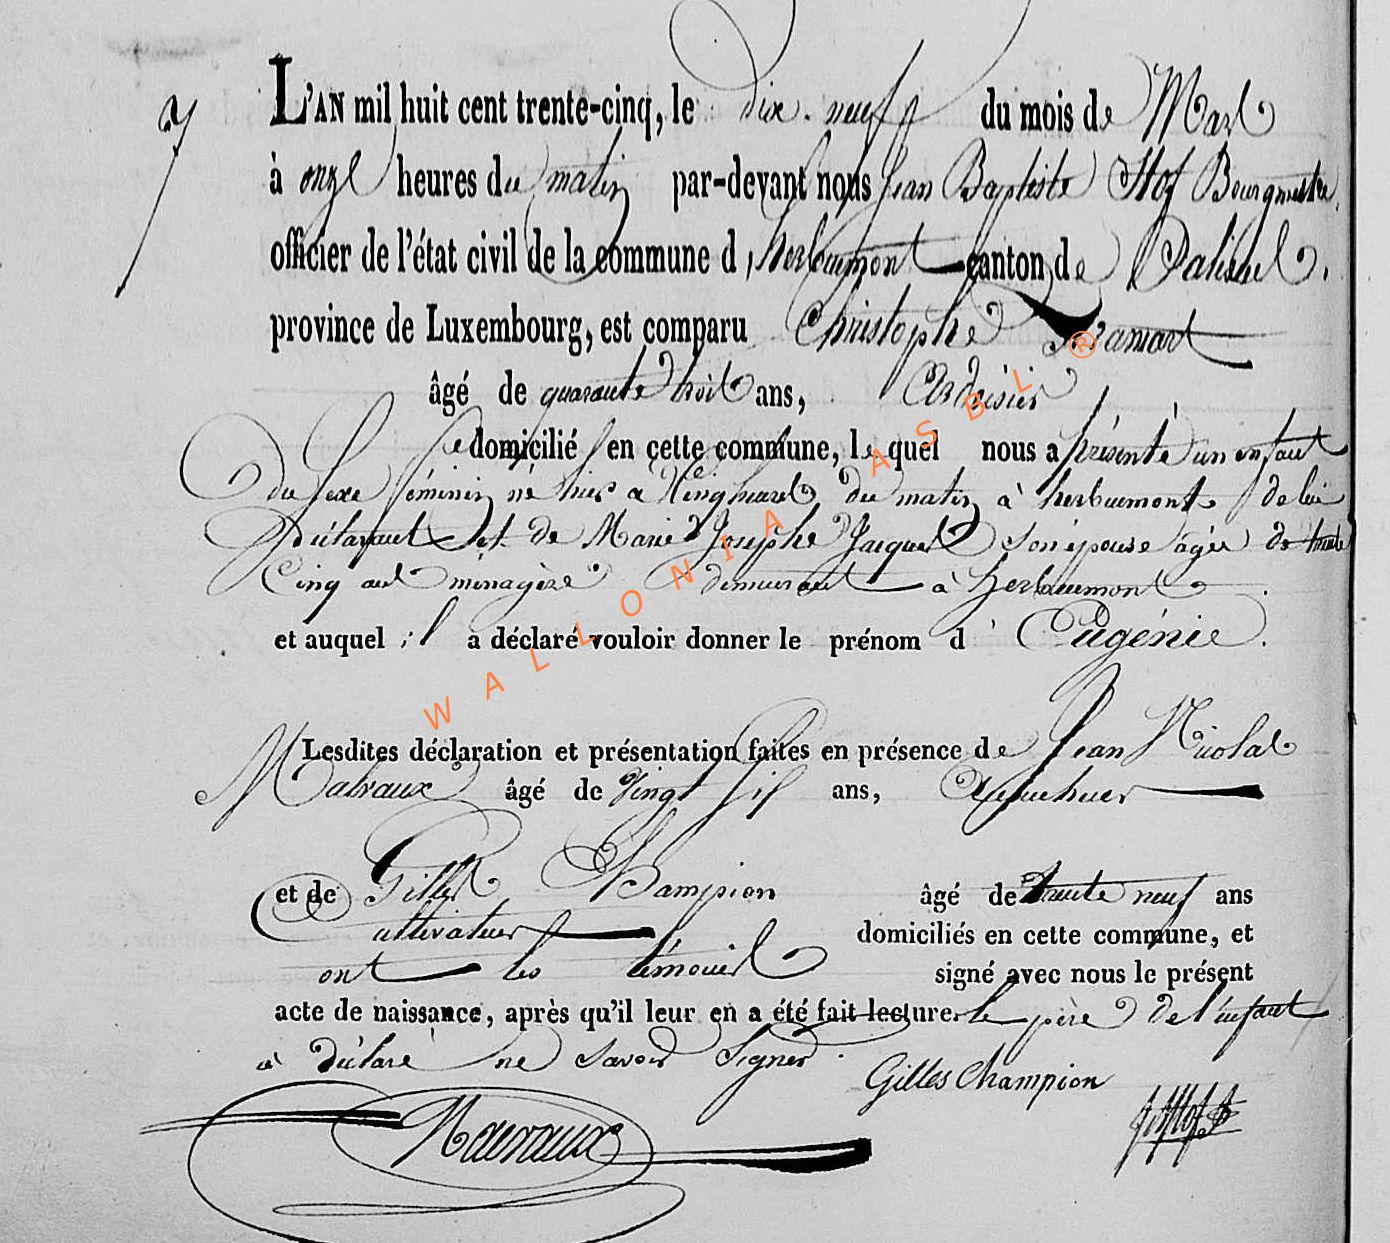 7
L'AN mil huit cent trente-cinq, le dix-neuf du mois de Mars
à onze heures du matin par-devant nous Jean Baptiste Hof Bourgmestre
officier de l'état civil de la commune d'herbeumont canton de Paliseul.
province de Luxembourg, est comparu Christophe
âgé de quarante trois ans, Ardoisier
domicilié en cette commune, lequel nous a présenté un enfant
du sexe féminin né hier à cinq heures du matin à herbeumont de lui
Déclarant et de Marie Josephe Jacques son épouse âgée de trente
Cinq ans ménagère demeurant à herbeumont
et auquel il a déclaré vouloir donner le prénom d'Eugénie.
Lesdites déclaration et présentation faites en présence de Jean Nicolas
Malvaux âgé de vingt six ans,
et de Gilles Champion âgé de trente neuf ans
cultivateur domiciliés en cette commune, et
ont les témoins signé avec nous le présent
acte de naissance, après qu'il leur en a été fait lecture. le père de l'enfant
a déclaré ne savoir signer.
Gilles Champion
Malvaux
WALLONIA ASBL ®